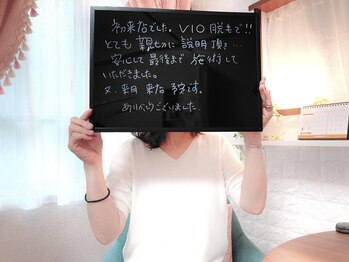 初来店でした。VIO脱毛で!!
とても親切に説明頂き…
安心して最後まで施術して
いただきました。
又、来月来店予定です。
ありがとうございました。